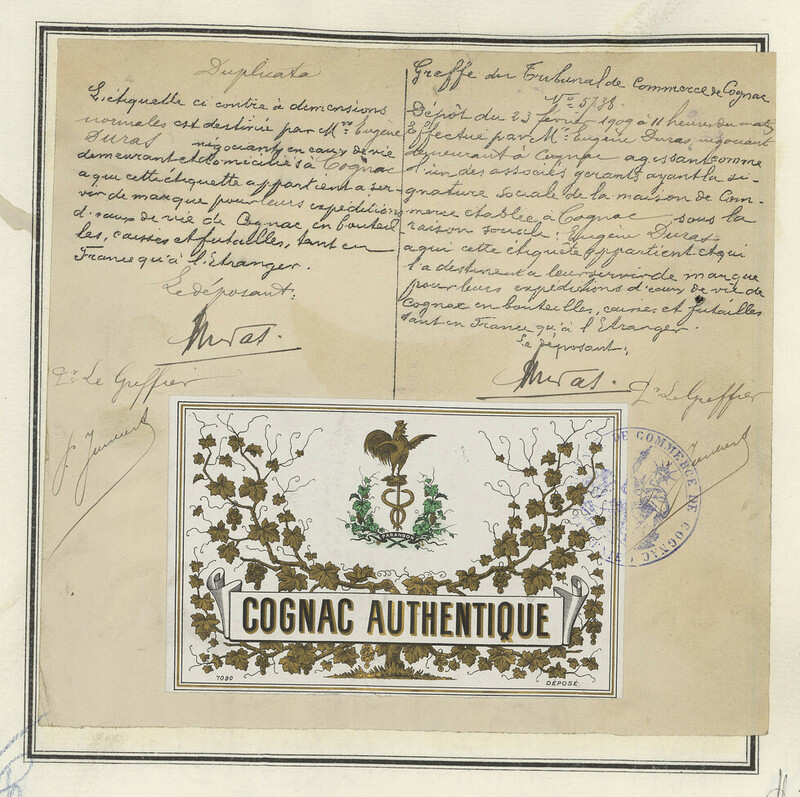 Duplicata
L'étiquette ci contre à dimensions
normales est destinée par Mr Eugène
Duras négociant en eaux de vie
demeurant et domicilié à Cognac
a qui cette étiquette appartient a ser-
vir de marque pour leurs expéditions
d'eaux de vie de Cognac en bouteil-
les, caisses et futailles, tant en
France qu'à l'Etranger.
Le déposant:
Duras.
Pr Le Greffier
Greffe du Tribunal de Commerce de Cognac
No 5738
Dépôt du 23 février 1909 à 11 heures du matin
Effectué par Mr Eugène Duras, négociant
demeurant à Cognac agissant comme
l'un des associés gérants ayant la si-
gnature sociale de la maison de Com-
merce établie à Cognac sous la
raison sociale: Eugène Duras
a qui cette étiquete appartient et qui
l'a destinent a leur servir de marque
pour leurs expéditions d'eaux de vie de
Cognac en bouteilles, caisses et futailles
tant en France qu'à l'Etranger.
Le déposant:
Duras.
Pr Le Greffier
PARANGON
COGNAC AUTHENTIQUE
7090
DÉPOSÉ
DE COMMERCE DE COGNAC